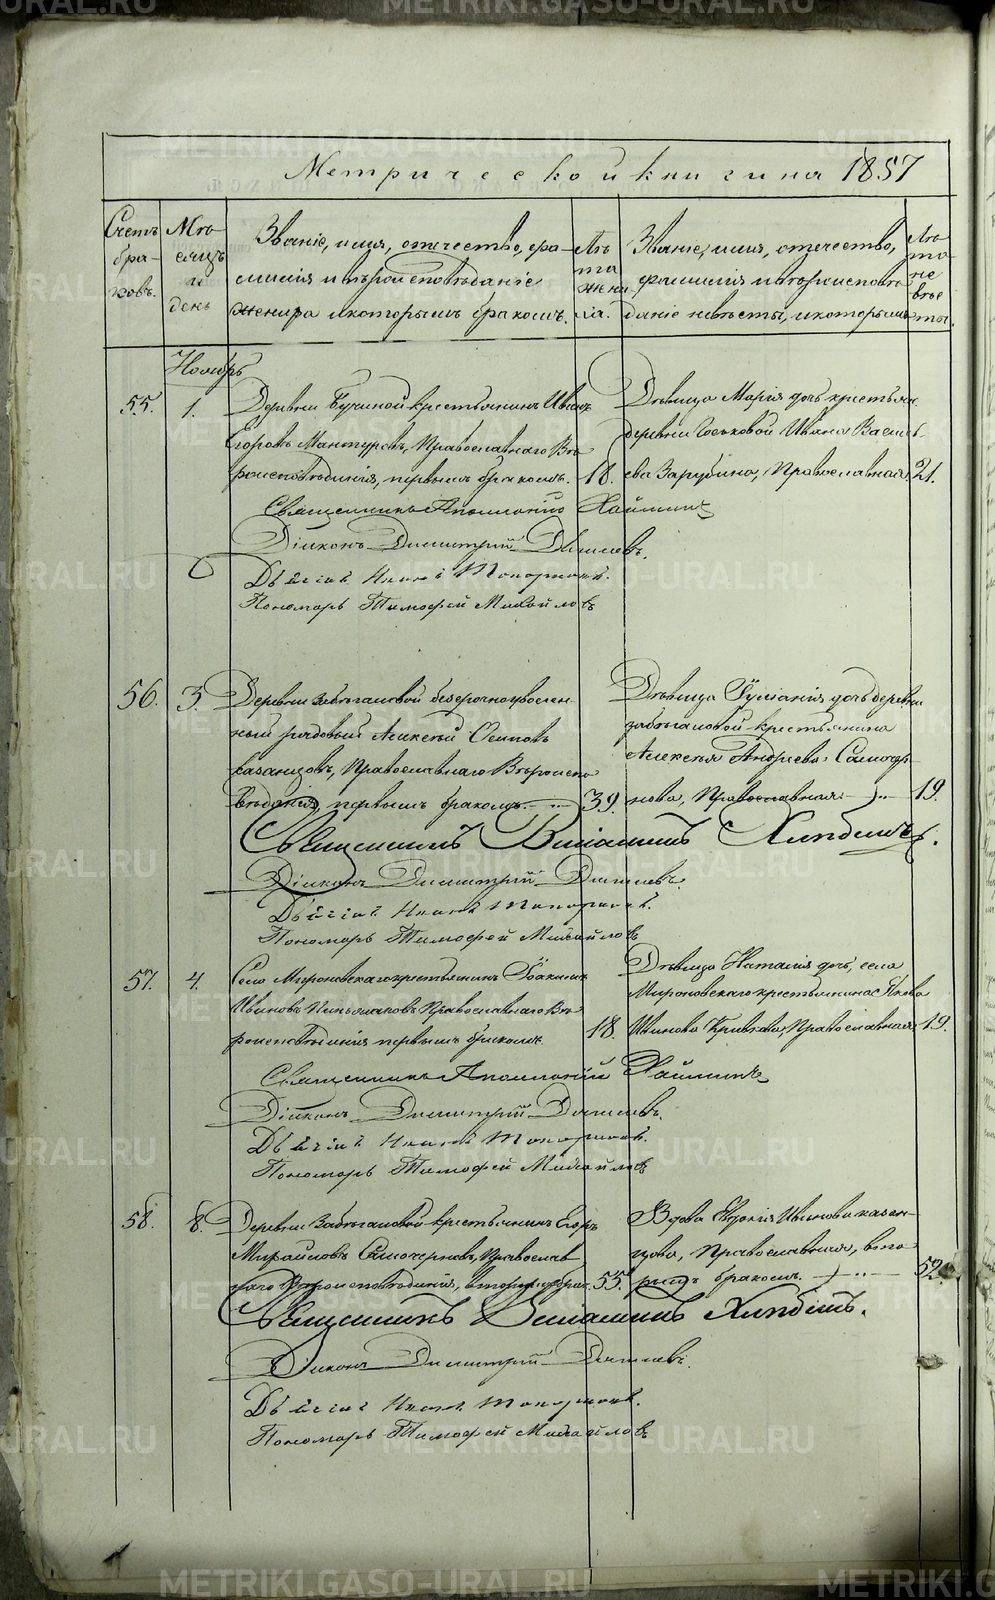 METRIKI.GASO-URAL.RU
Метрической книги на 1857
Счетъ браковъ.
Мѣсяцъ и день
Званіе, имя, отечество, фамилія и вѣроисповѣданіе женира и которымъ бракомъ.
Лѣта жениха.
Званіе, имя, отечество, фамилія и вѣроисповѣданіе невѣсты, и которымъ
Лѣта невѣсты.
Ноябрь
55. 1. Деревни Бучиной крестьянинъ Иванъ
Егоровъ Мантуровъ, Православнаго Вѣ-
роисповѣданія, первымъ бракомъ. 18.
Дѣвица Марія дочь крестьян.
деревни Госьковой Ивана Василь-
ева Зарубина, Православная 21.
Священникъ Аполлоній
Діаконъ Димитрій
Дьячій Иванъ Топорковъ.
Пономарь Тимофей Михайловъ
56. 3. Деревни безсрочноуволен-
ный рядовый Алексѣй Осиповъ
Казанцовъ, Православнаго Вѣроиспо-
вѣданія, первымъ бракомъ. 39.
Дѣвица Іуліанія дочь деревни
крестьянина
Алексѣя Андреева
нова, Православная 19.
Священникъ Веніаминъ
Діаконъ Димитрій
Дьячій Иванъ Топорковъ.
Пономарь Тимофей Михайловъ
57. 4. Села Мироновскаго крестьянинъ Іоакимъ
Ивановъ Православнаго Вѣ-
роисповѣданія первымъ бракомъ. 18.
Дѣвица Наталія дочь, села
Мироновскаго крестьянина Якова
Иванова Православная 19.
Священникъ Аполлоній
Діаконъ Димитрій
Дьячій Иванъ Топорковъ.
Пономарь Тимофей Михайловъ
58. 8. Деревни крестьянинъ Егоръ
Михайловъ Православ-
наго Вѣроисповѣданія, вторымъ брак. 55.
Вдова Евдокія Иванова Казан-
цова, Православная, вто-
рымъ бракомъ. 52.
Священникъ Веніаминъ
Діаконъ Димитрій
Дьячій Иванъ Топорковъ.
Пономарь Тимофей Михайловъ